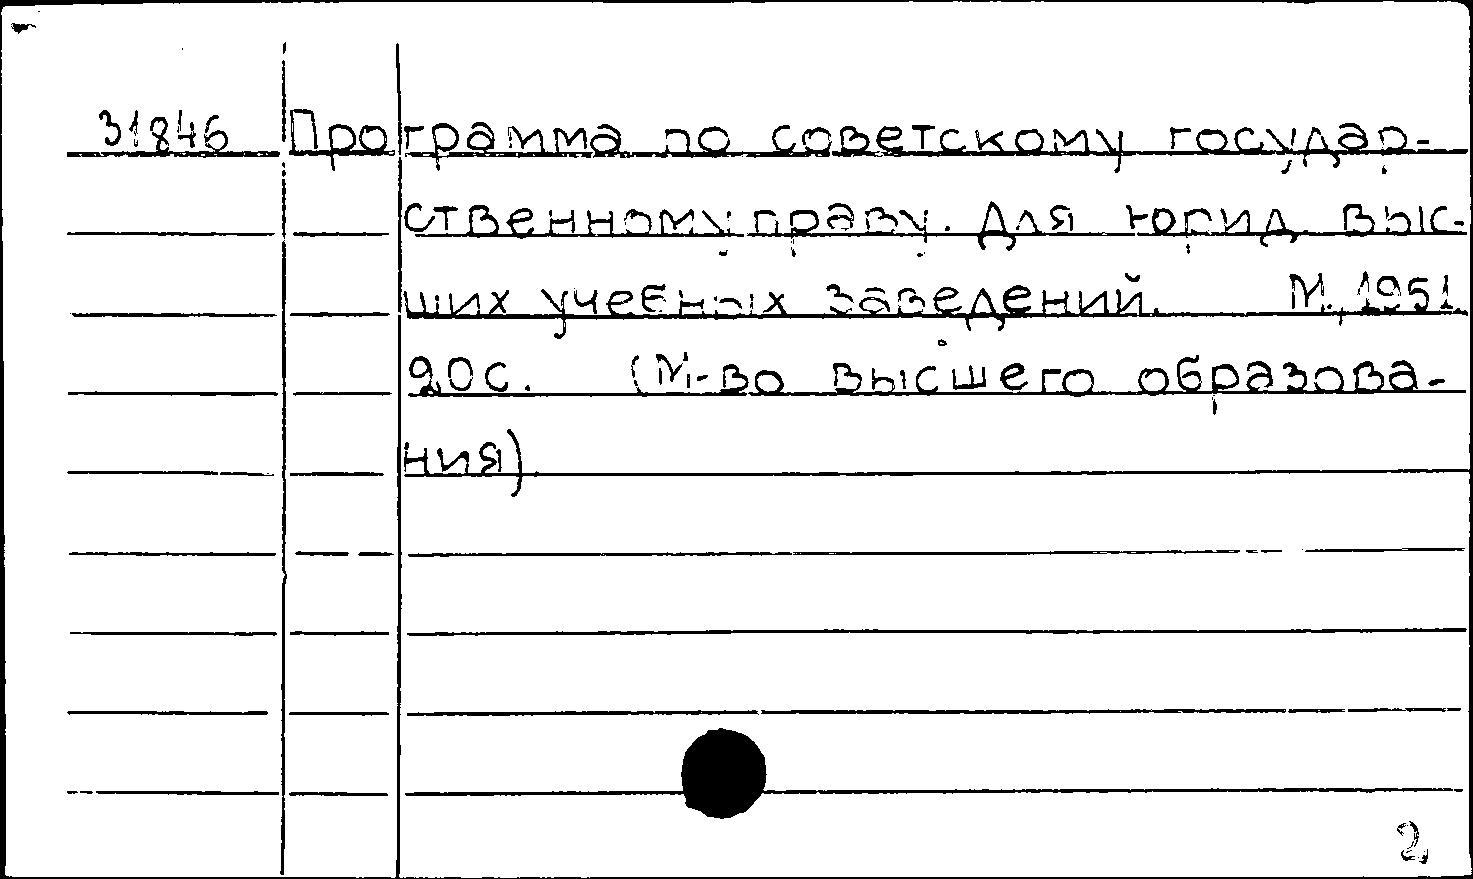 31846 Программа по советскому государ-
ственному праву. Для юрид. выс-
ших учебных заведений. М., 1951.
20с. (М-во высшего образова-
ния).
2